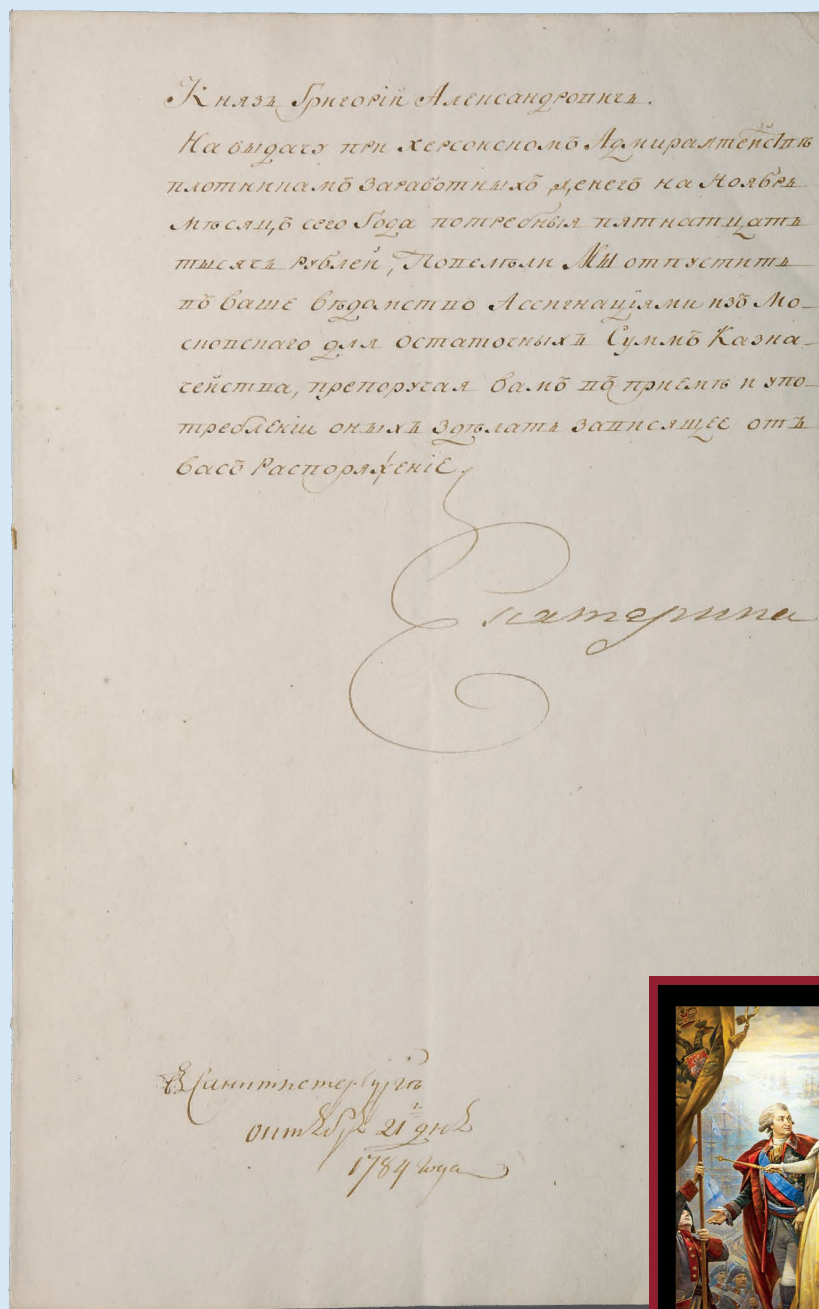 Князь Григорій Александровичь.
На выдачу при Херсонскомъ Адмиралтействѣ
плотникамъ заработныхъ денегъ на Ноябрь
мѣсяцъ сего Года потребныя пятнатцать
тысячь рублей, Повелѣли Мы отпустить
въ ваше вѣдомство Ассигнаціями изъ Мо-
сковскаго для остаточныхъ Суммъ Казна-
чейства, препоручая вамъ въ пріемѣ и упо-
требленіи оныхъ здѣлать зависящее отъ
васъ Распоряженіе.
Екатерина
В Санктпетербургѣ
октября 21 дня
1784 года